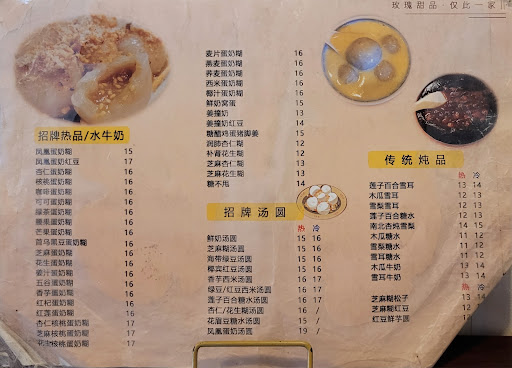 玫瑰甜品·仅此一家
招牌热品/水牛奶
凤凰蛋奶糊 15
凤凰蛋奶红豆 17
杏仁蛋奶糊 16
核桃蛋奶糊 16
咖啡蛋奶糊 16
可可蛋奶糊 16
绿茶蛋奶糊 16
腰果蛋奶糊 16
芒果蛋奶糊 16
首乌黑豆蛋奶糊 16
芝麻蛋奶糊 16
花生蛋奶糊 16
姜汁蛋奶糊 16
五谷蛋奶糊 16
香芋蛋奶糊 16
红杞蛋奶糊 16
红莲蛋奶糊 16
杏仁核桃蛋奶糊 17
芝麻核桃蛋奶糊 17
核桃蛋奶糊 17
麦片蛋奶糊 16
燕麦蛋奶糊 16
荞麦蛋奶糊 16
西米蛋奶糊 16
椰汁蛋奶糊 16
鲜奶窝蛋 15
姜撞奶 13
姜撞奶红豆 14
糖醋鸡蛋猪脚姜 15
润肺杏仁糊 12
补肾花生糊 12
芝麻杏仁糊 13
芝麻花生糊 13
糖不甩 14
招牌汤圆
热 冷
鲜奶汤圆 15 16
芝麻糊汤圆 15 16
海带绿豆汤圆 15 16
椰宾红豆汤圆 15 16
香芋西米汤圆 16 17
绿豆/红豆西米汤圆 16 17
莲子百合糖水汤圆 16 17
杏仁/花生糊汤圆 16 /
花眉豆糖水汤圆 16 /
凤凰蛋奶汤圆 19 /
传统炖品
热 冷
莲子百合雪耳 13 14
木瓜雪耳 12 13
雪梨雪耳 12 13
莲子百合糖水 11 12
南北杏炖雪梨
木瓜糖水 11 12
雪梨糖水 11 12
雪耳糖水 11 12
木瓜牛奶 13 14
雪耳牛奶 13 14
热 冷
芝麻糊松子 13 14
芝麻糊红豆 11 12
红豆鲜芋圆 13 14